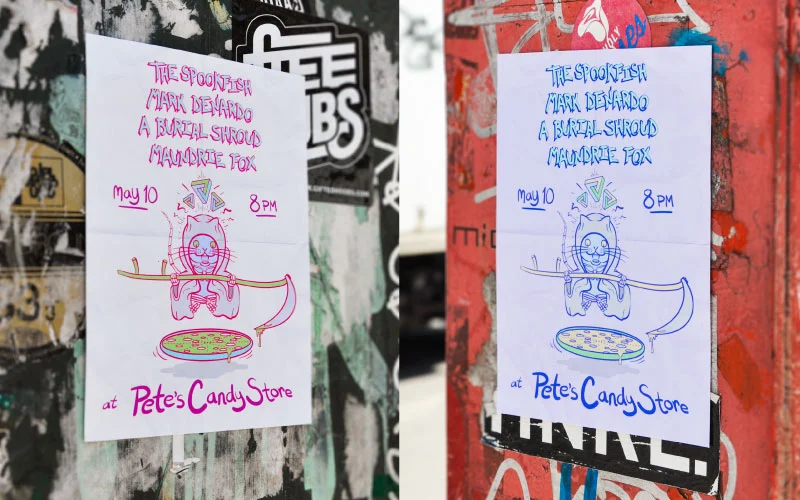 THE SPOOKFISH
MARK DENARDO
A BURIAL SHROUD
MAUNDRIE FOX
May 10
8 PM
at Pete's Candy Store
THE SPOOKFISH
MARK DENARDO
A BURIAL SHROUD
MAUNDRIE FOX
May 10
8 PM
at Pete's Candy Store